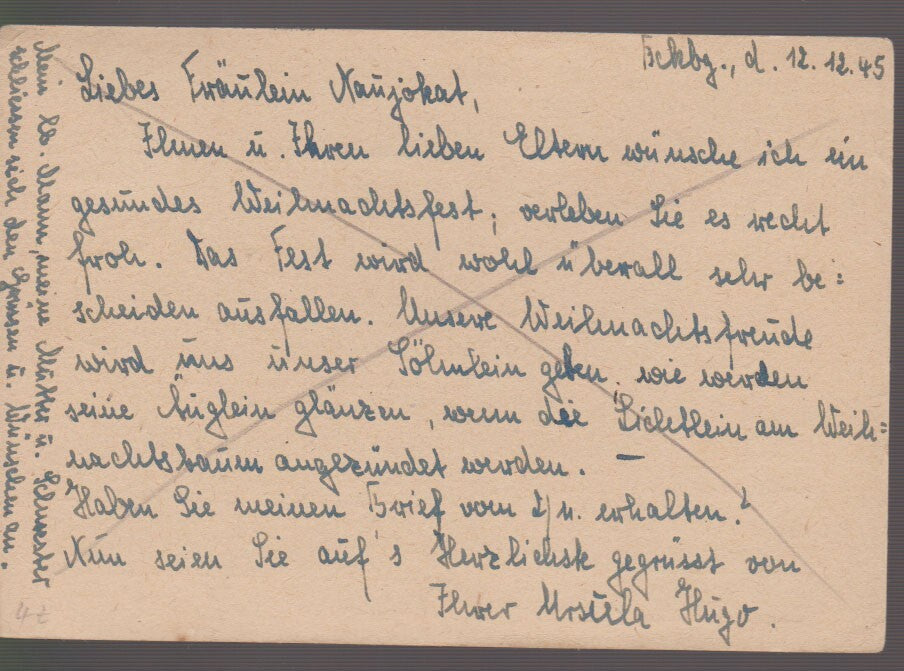 Bckbg., d. 12.12.45
Liebes Fräulein Naujokat,
Ihnen u. Ihren lieben Eltern wünsche ich ein
gesundes Weihnachtsfest; verleben Sie es recht
froh. Das Fest wird wohl überall sehr be=
scheiden ausfallen. Unsere Weihnachtsfreude
wird uns unser Söhnlein geben, wie werden
seine Äuglein glänzen, wenn die Lichtlein am Weih=
nachtsbaum angezündet werden. —
Haben Sie meinen Brief vom erhalten?
Nun seien Sie auf's Herzlichste gegrüsst von
Ihrer Ursula Hugo.
Mein lb. Mann, meine Mutter u. Schwester
schliessen sich den Grüssen u. Wünschen an.